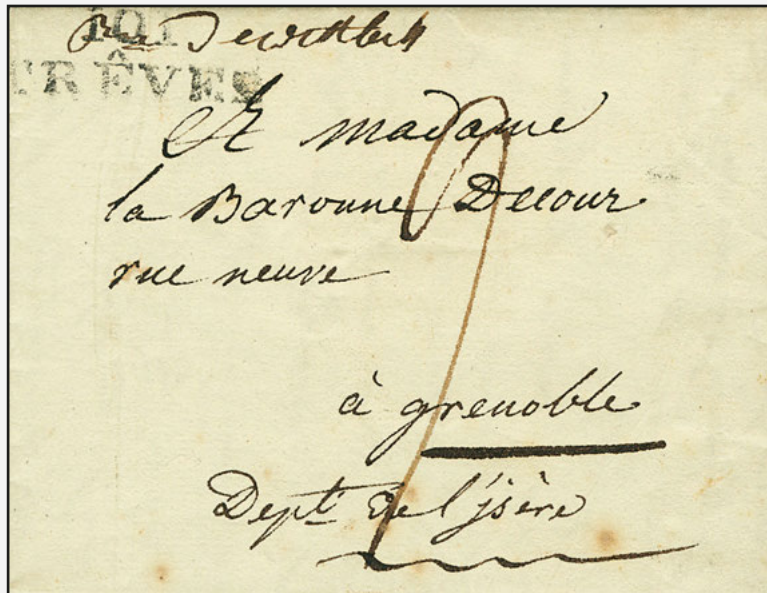 101
TRÊVES
A madame
la Baronne Decour
rue neuve
à grenoble
Dept de l'jsère
9